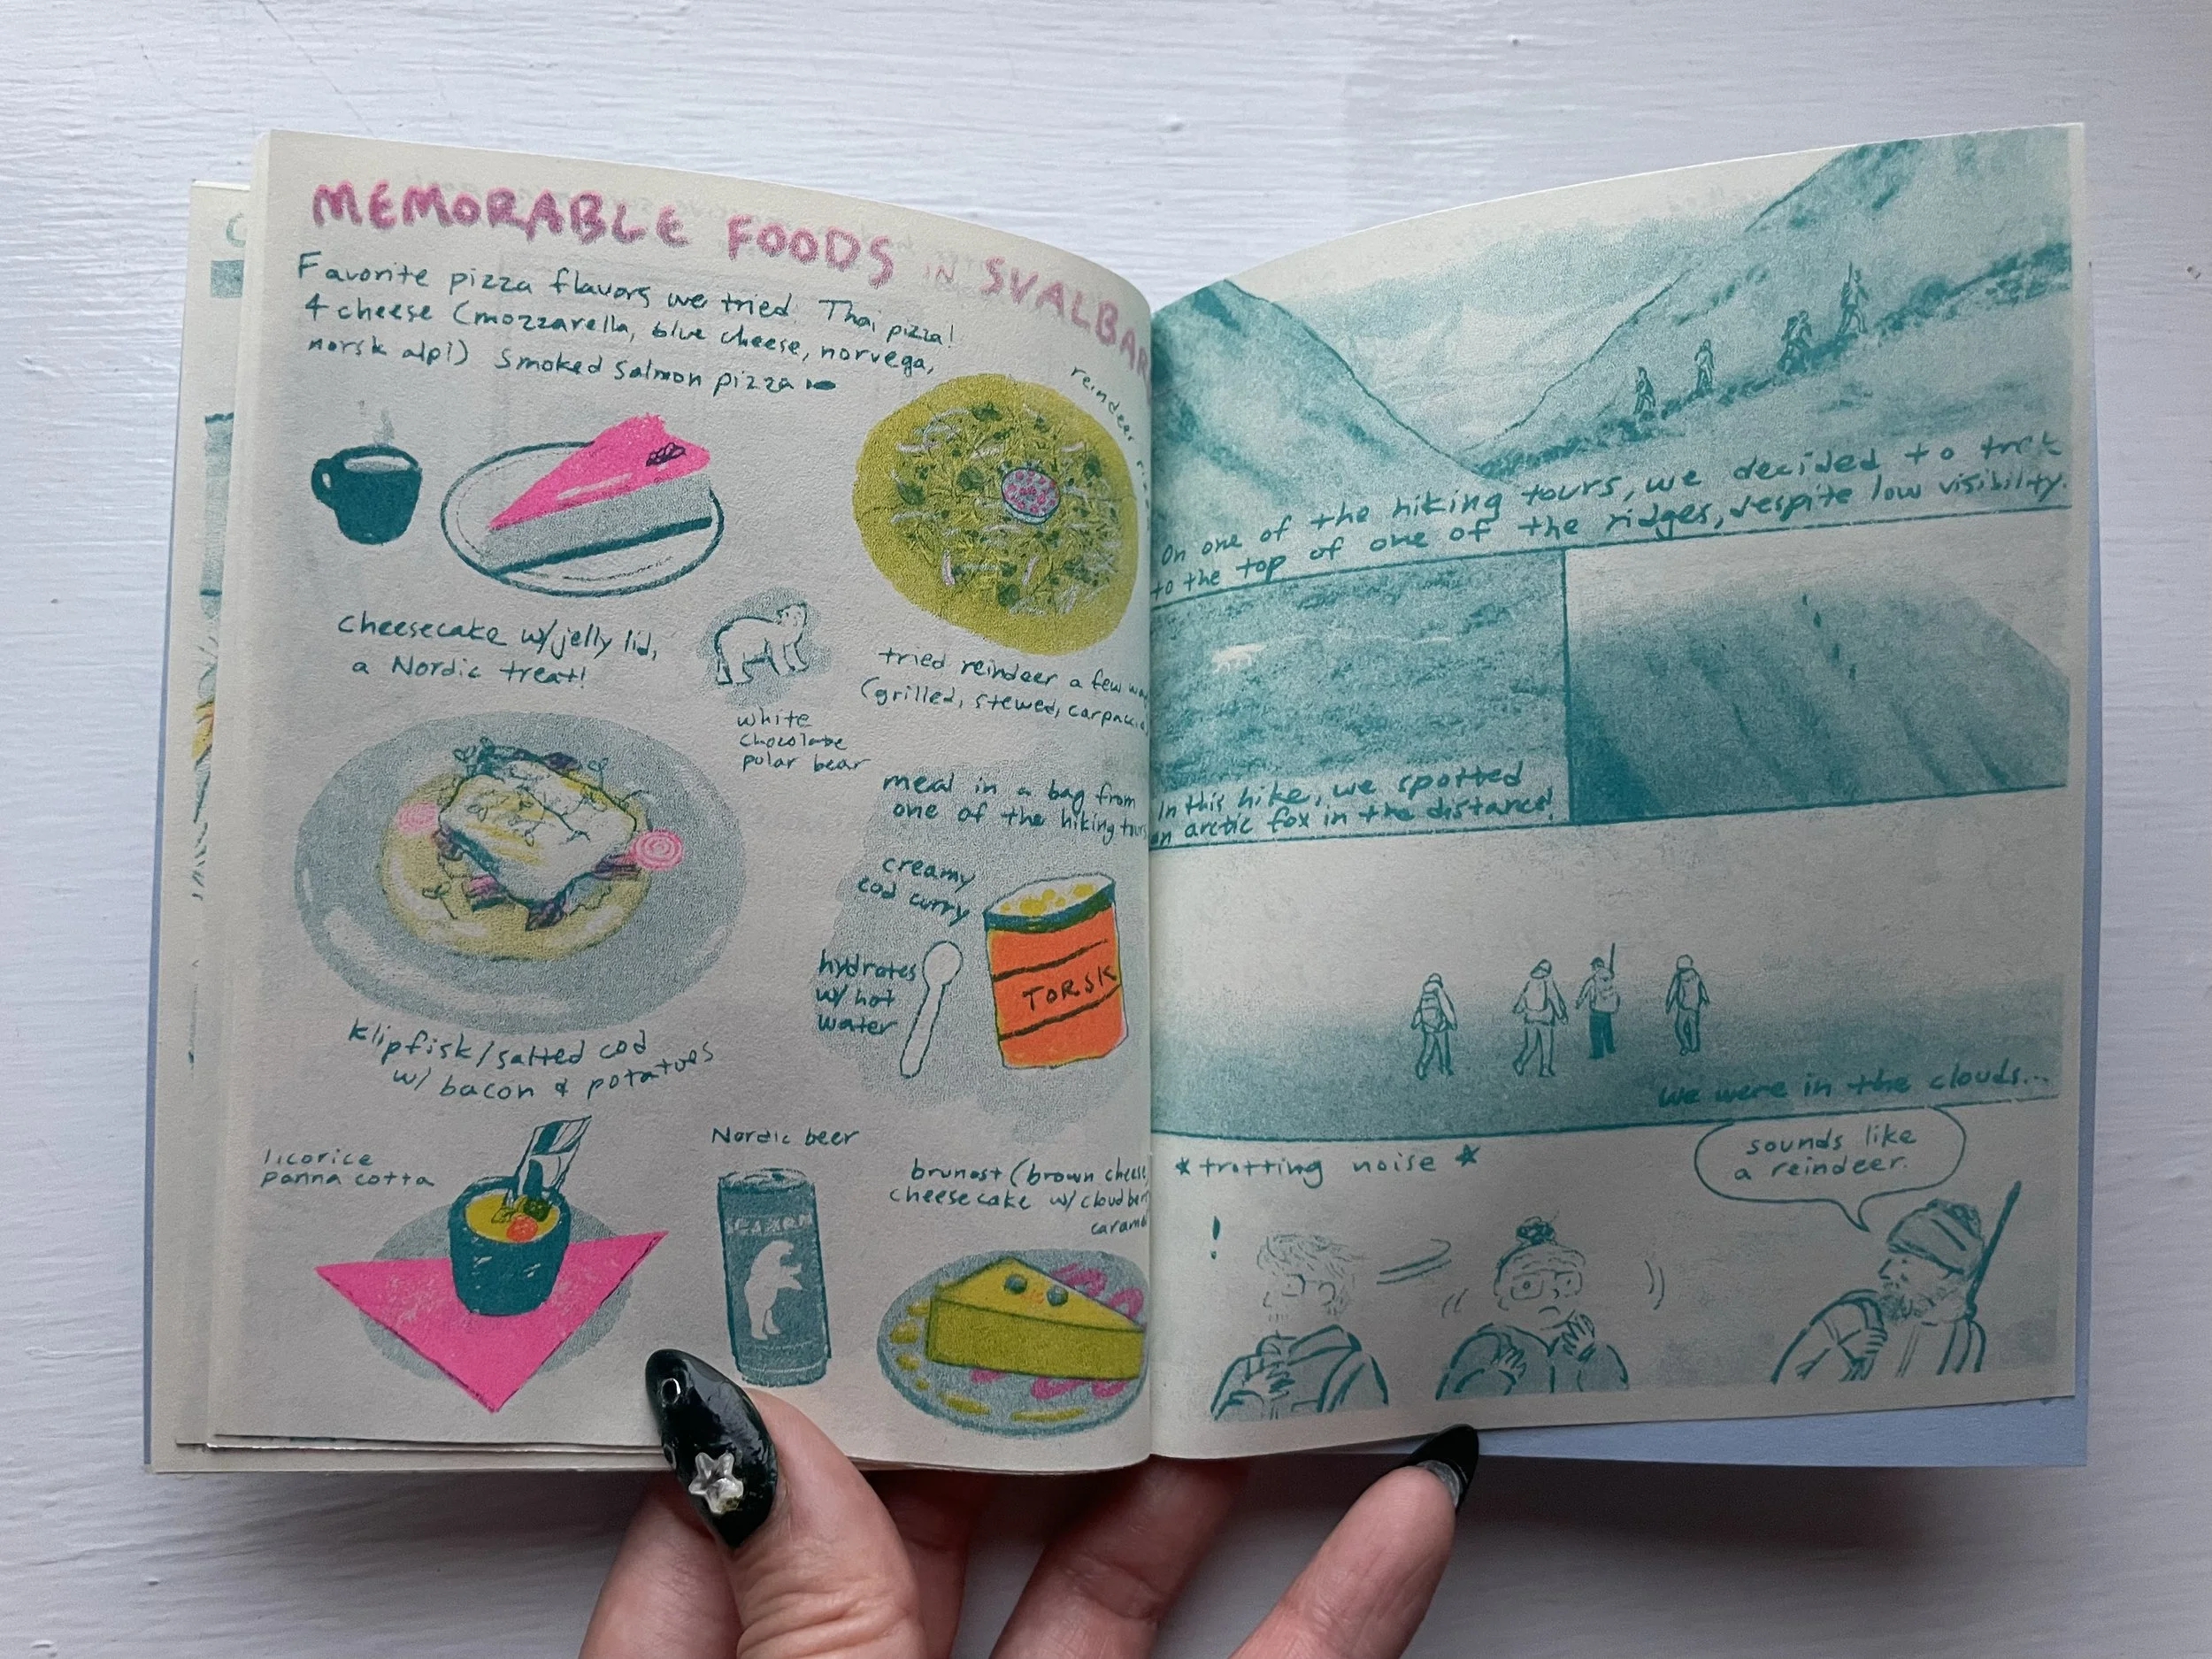 MEMORABLE FOODS IN SVALBAR
Favorite pizza flavors we tried. Thai pizza!
4 cheese (mozzarella, blue cheese, norvega,
norsk alpi) Smoked Salmon pizza
reindeer
cheesecake w/jelly lid,
a Nordic treat!
white
chocolate
polar bear
tried reindeer a few
(grilled, stewed, carpacci
meal in a bag from
one of the hiking tours
creamy
cod curry
hydrates
w/ hot
water
TORSK
klipfisk/salted cod
w/ bacon & potatoes
licorice
panna cotta
Nordic beer
brunost (brown cheese
cheesecake w/ cloudber
caramel
On one of the hiking tours, we decided to trek
to the top of one of the ridges, despite low visibility.
In this hike, we spotted
an arctic fox in the distance!
We were in the clouds...
*trotting noise*
!
sounds like
a reindeer.